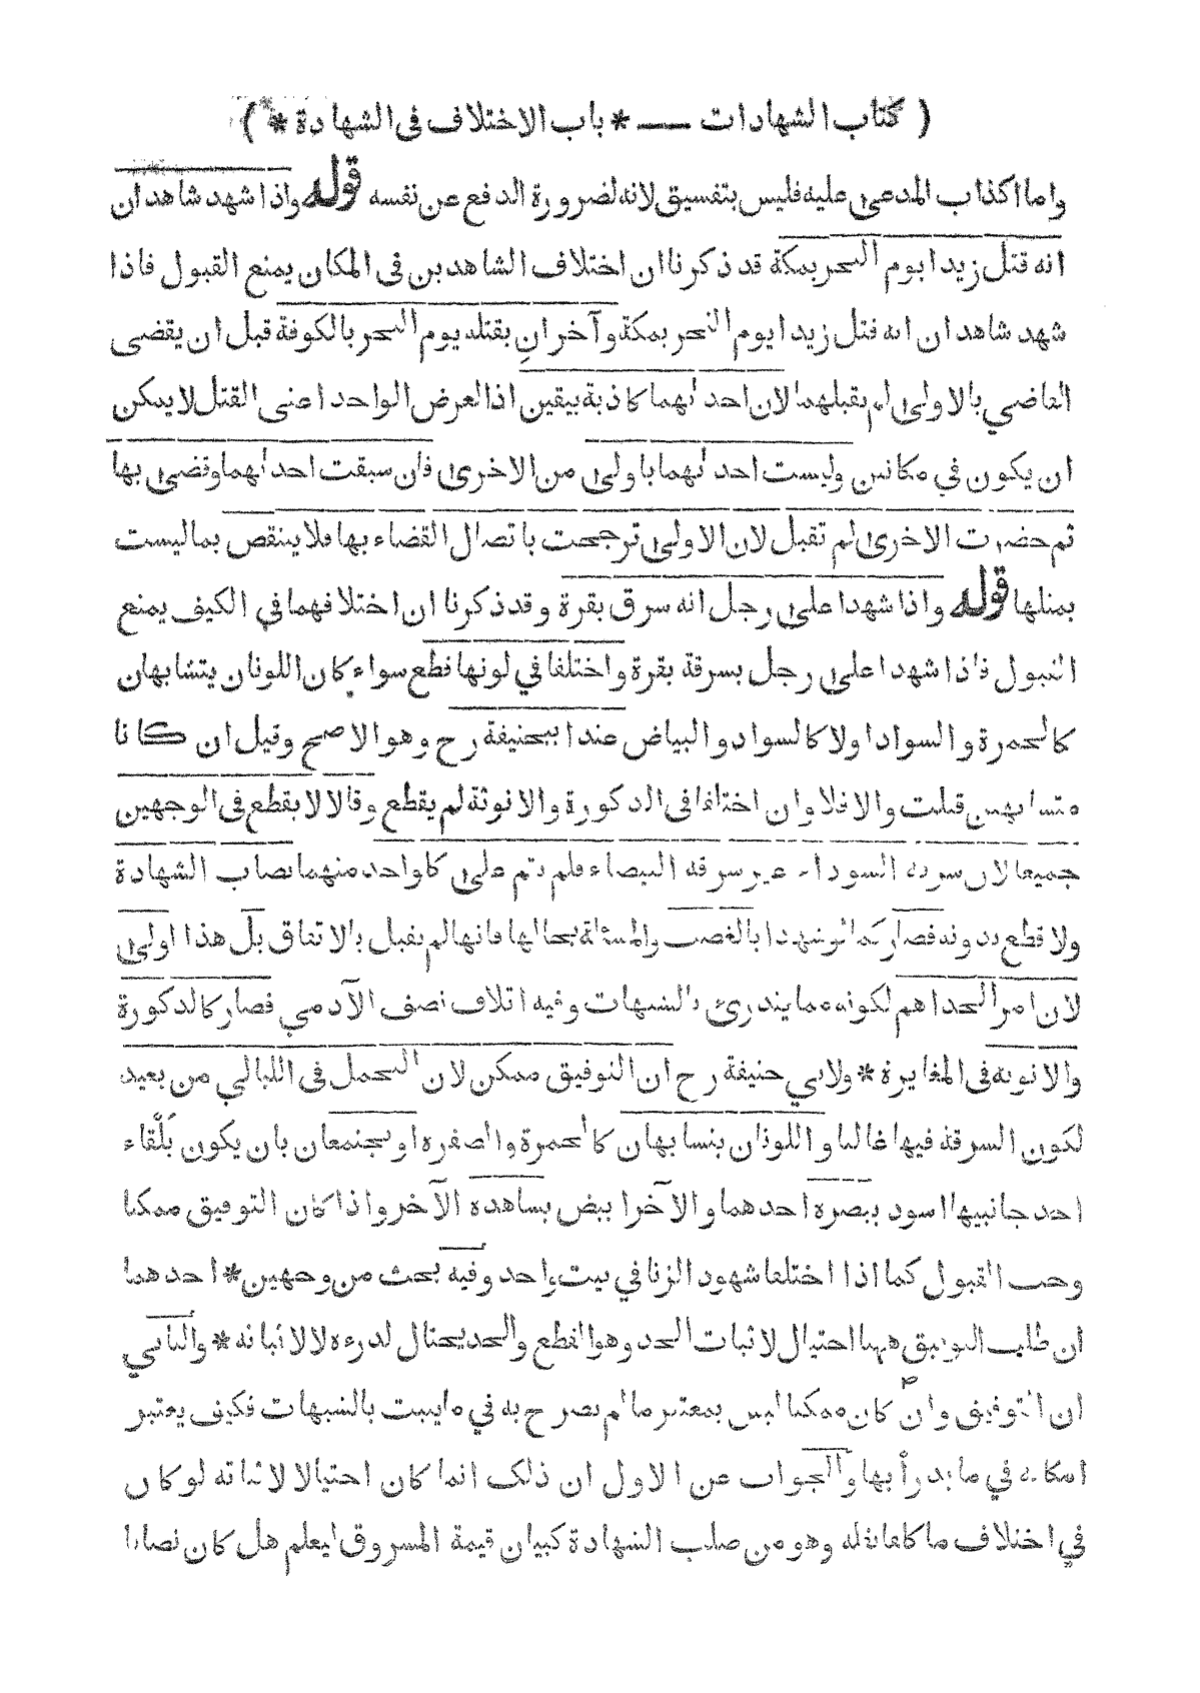 ( كتاب الشهادات — * باب الاختلاف فى الشهادة * )
واما اكذاب المدعى عليه فليس بتفسيق لانه لضرورة الدفع عن نفسه قوله واذا شهد شاهدان
انه قتل زيدا يوم النحر بمكة قد ذكرنا ان اختلاف الشاهدين فى المكان يمنع القبول فاذا
شهد شاهدان انه قتل زيدا يوم النحر بمكة وآخران بقتله يوم النحر بالكوفة قبل ان يقضى
القاضي بالاولى لم يقبلهما لان احدٰهما كاذبة بيقين اذ العرض الواحد اعنى القتل لا يمكن
ان يكون في مكانين وليست احدٰهما باولى من الاخرى فان سبقت احدٰهما وقضى بها
ثم حضرت الاخرى لم تقبل لان الاولى ترجحت باتصال القضاء بها فلا ينتقض بما ليست
بمثلها قوله واذا شهدا على رجل انه سرق بقرة وقد ذكرنا ان اختلافهما في الكيف يمنع
القبول فاذا شهدا على رجل بسرقة بقرة واختلفا في لونها قطع سواء كان اللونان يتشابهان
كالحمرة والسواد اولا كالسواد والبياض عند ابيحنيفة رح وهو الاصح وقيل ان كانا
متشابهين قبلت والا فلا وان اختلفا فى الذكورة والانوثة لم يقطع وقالا لا يقطع فى الوجهين
جميعا لان سرقة السوداء غير سرقة البيضاء فلم يتم على كل واحد منهما نصاب الشهادة
ولا قطع بدونه فصار كما لو شهدا بالغصب والمسئلة بحالها فانها لم يقبل بالاتفاق بل هذا اولى
لان امر الحد اهم لكونه مما يندرئ بالشبهات وفيه اتلاف نصف الآدمي فصار كالذكورة
والانوثة فى المغايرة * ولابي حنيفة رح ان التوفيق ممكن لان التحمل فى الليالي من بعيد
لكون السرقة فيها غالبا واللونان يتشابهان كالحمرة والصفرة او يجتمعان بان يكون بَلْقاء
احد جانبيها اسود يبصره احدهما والآخر ابيض يشاهده الآخر واذا كان التوفيق ممكنا
وجب القبول كما اذا اختلفا شهود الزنا في بيت واحد وفيه بحث من وجهين * احدهما
ان طلب التوفيق ههنا احتيال لاثبات الحد وهو القطع والحد يحتال لدرءه لا لاثباته * والثاني
ان التوفيق وان كان ممكنا ليس بمعتبر ما لم يصرح به في ما يثبت بالشبهات فكيف يعتبر
امكانه في ما يدرأ بها والجواب عن الاول ان ذلك انما كان احتيالا لاثباته لو كان
في اختلاف ما كلفا نقله وهو من صلب الشهادة كبيان قيمة المسروق ليعلم هل كان نصابا